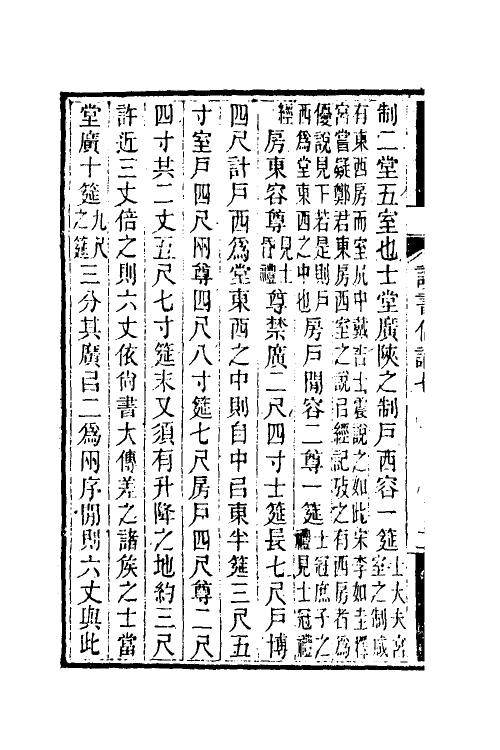 制二堂五室也士堂廣陜之制戶西容一筵士大夫宮室之制咸
有東西房而室凥中戴吉士震說之如此宋李如圭釋
宮嘗疑鄭君東房西室之說㠯經記攷之有西房者爲
優說見下若是則戶西爲堂東西之中也房戶閒容二尊一筵士冠庶子之禮見士冠禮
經房東容尊見士昏禮尊禁廣二尺四寸士筵長七尺戶博
四尺計戶西爲堂東西之中則自中㠯東半筵三尺五
寸室戶四尺兩尊四尺八寸筵七尺房戶四尺尊二尺
四寸共二丈五尺七寸筵末又須有升降之地約三尺
許近三丈倍之則六丈依尙書大傳差之諸矦之士當
堂廣十筵九尺之筵三分其廣㠯二爲兩序閒則六丈與此